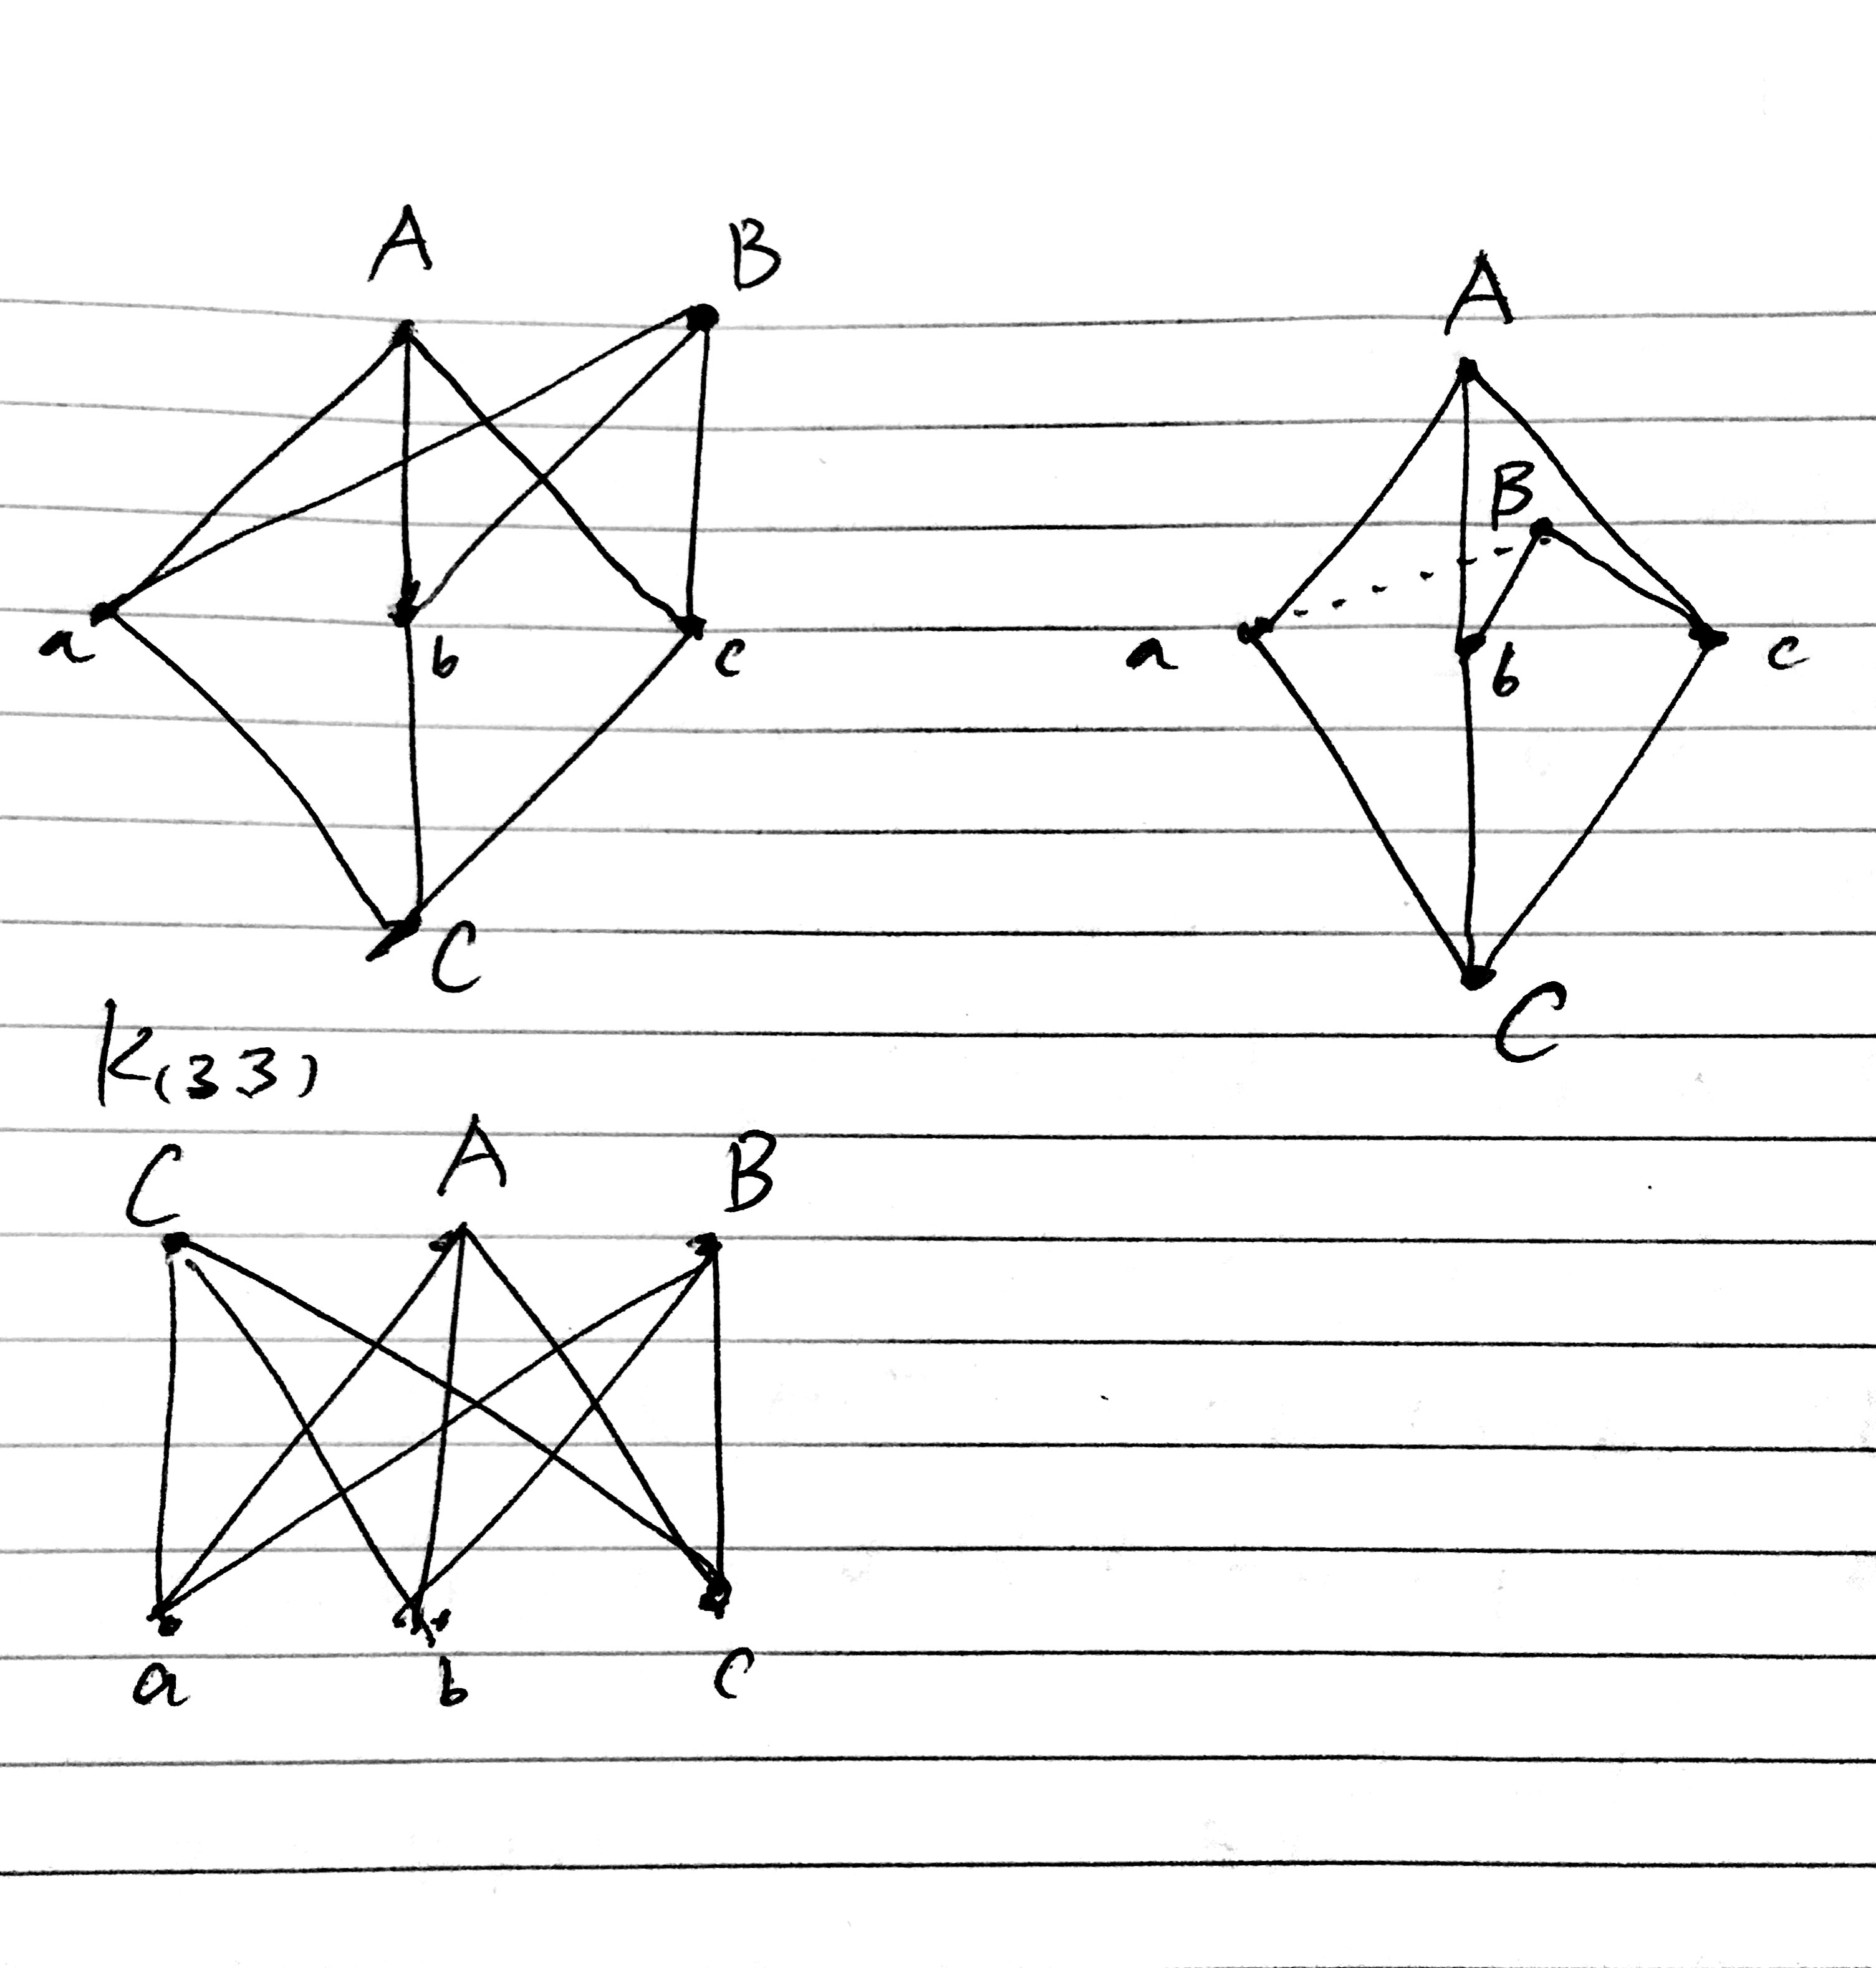 A B
A
B
a b c
a b c
C
C
K(33)
C A B
a b c